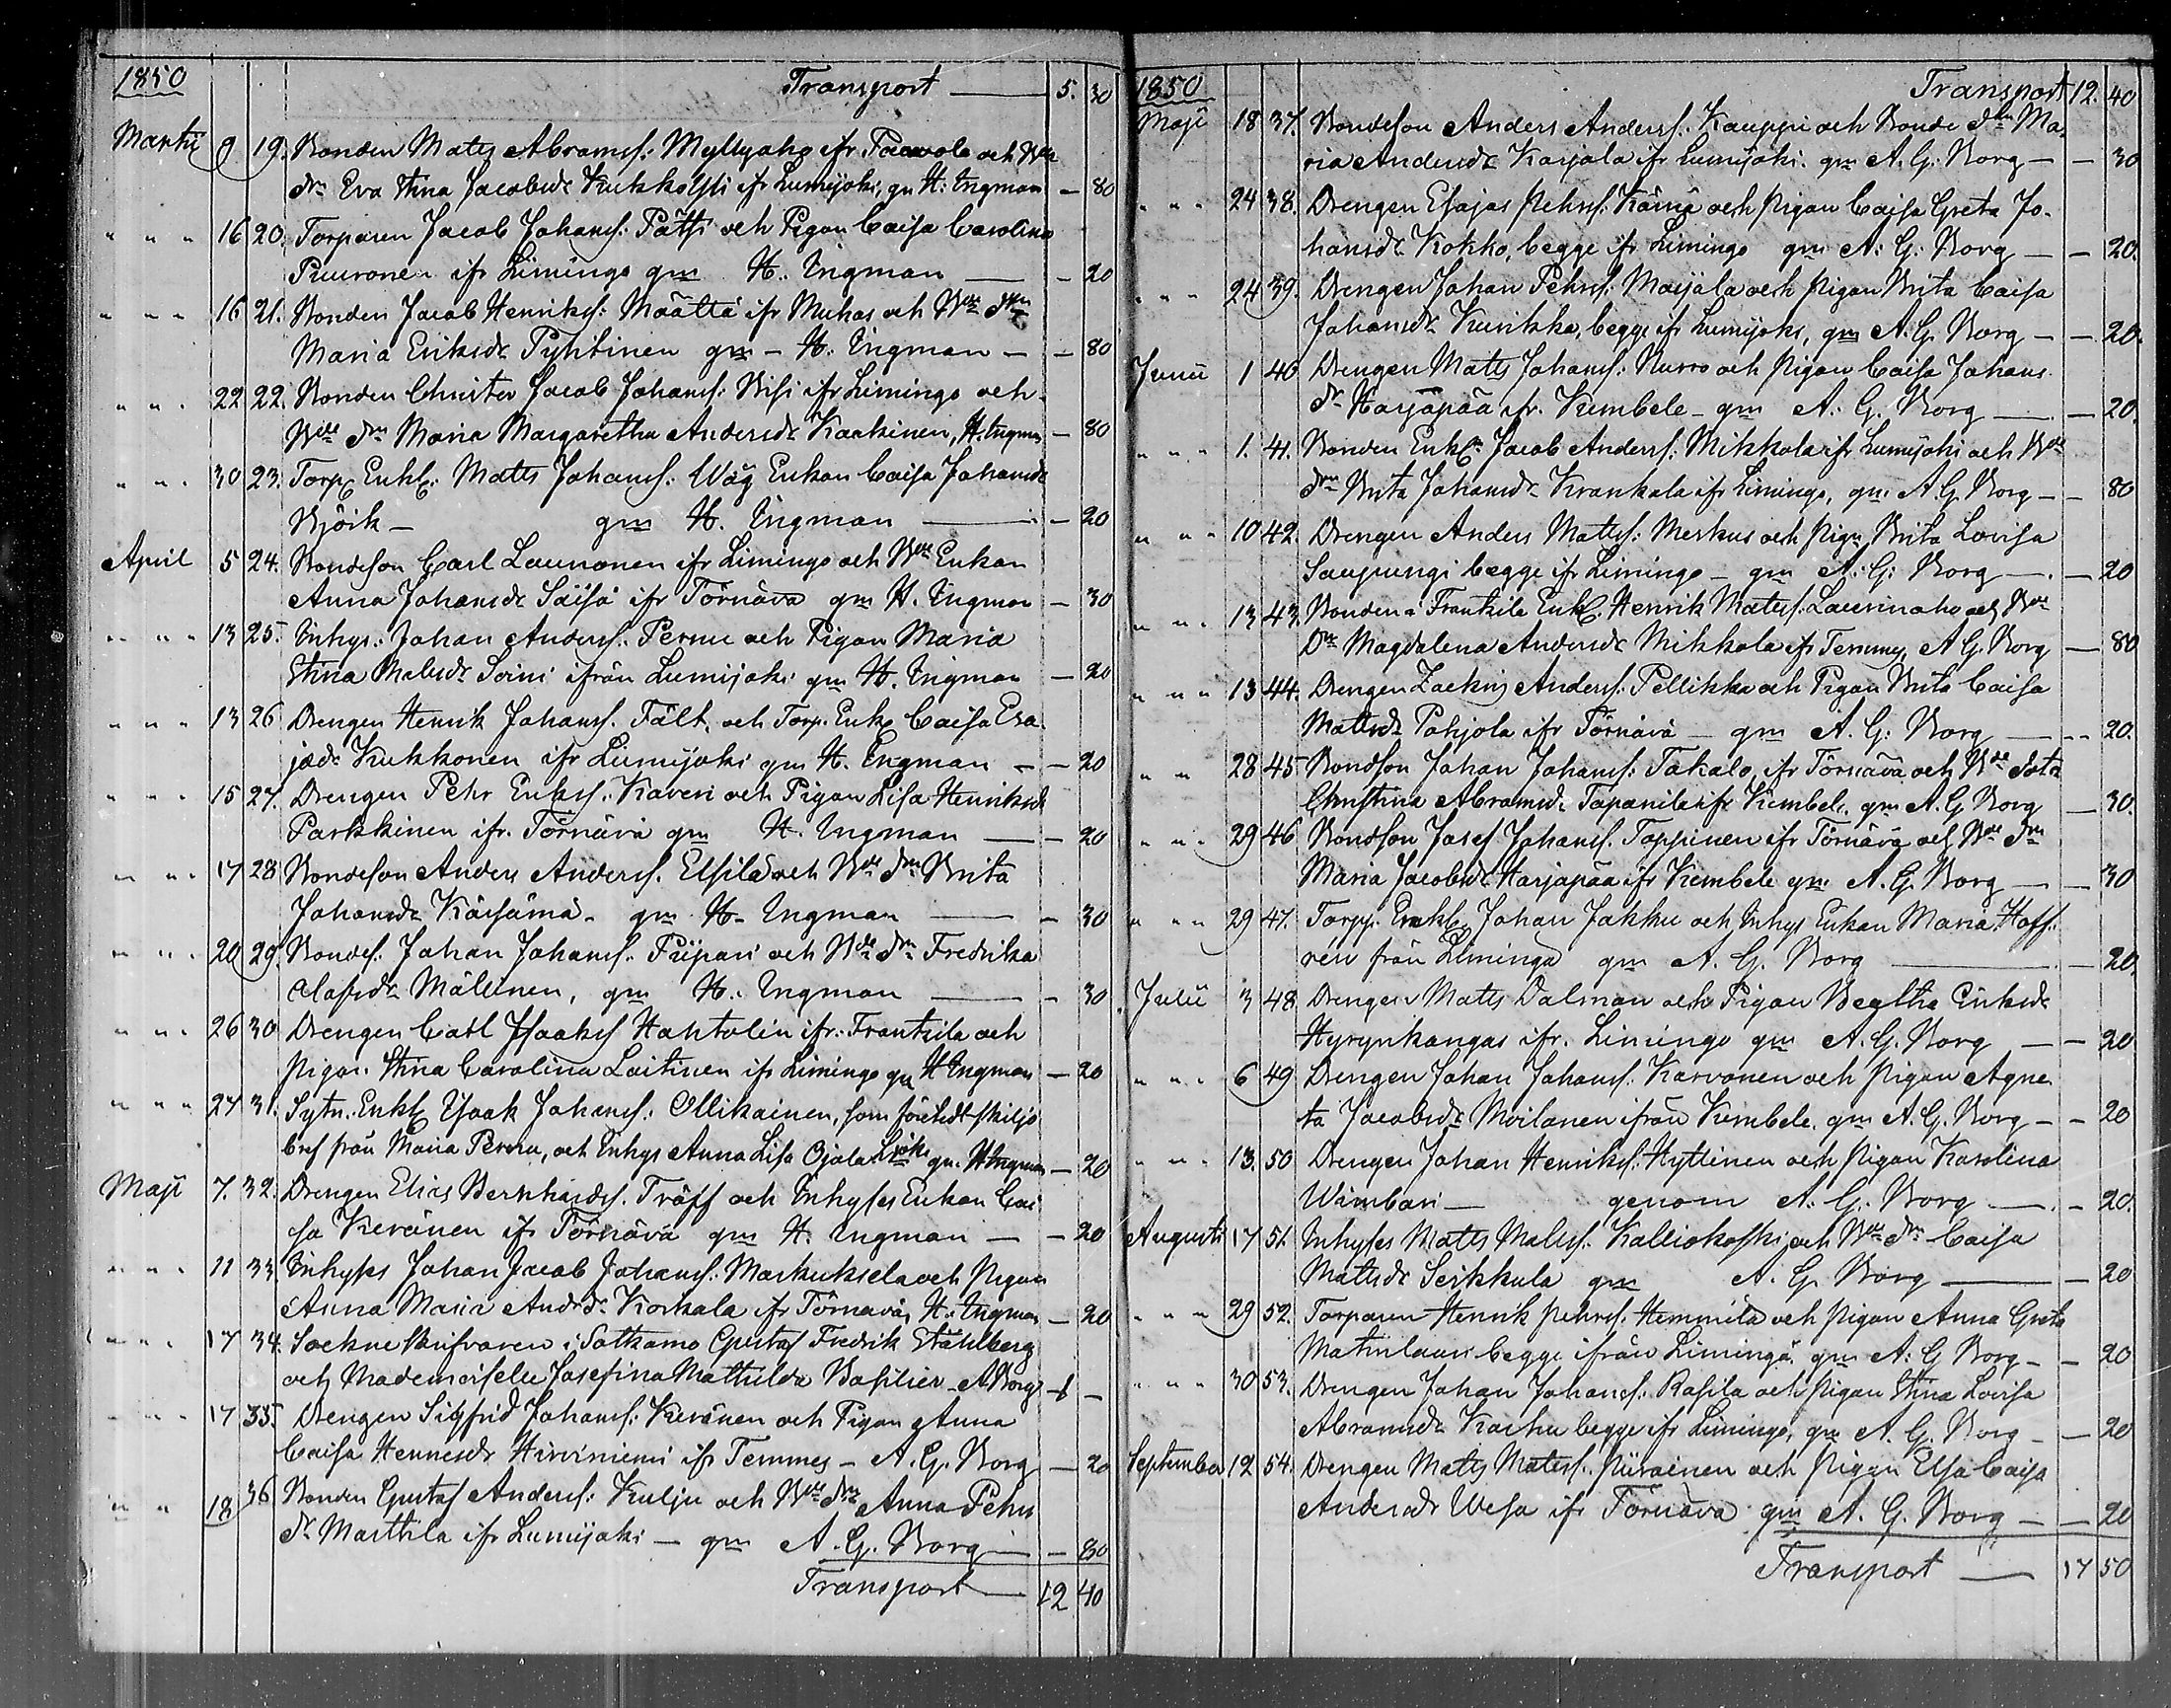 1850 Transport — 5. 30
Martii 9 19. Bonden Matts Abramss: Myllyaho ifr. Paavola och Bde
dr Eva Stina Jacobsdr Kukkohpi ifr Lumijoki, gm H: Ingman — 80
" " " 16 20. Torparen Jacob Johanss: Pätsi och Pigan Caisa Carolina
Puuronen ifr Limingo gm H. Ingman — — 20
" " " 16 21. Bonden Jacob Henrikss: Määttä ifr Muhos och Bde dtrn
Maria Eriksdr Pyhtinen gm — H. Ingman — — 80
" " " 22 22. Bonden Christer Jacob Johanss: Bisi ifr Limingo och
Bde drn Maria Margaretha Andersdr Kaakinen, H. Ingman — 80
" " " 30 23. Torp. Enkl: Matts Johanss: Wäg Enkan Caisa Johansdr
Björk — gm H. Ingman — — 20
April 5 24. Bondeson Carl Launonen ifr Limingo och Bde Enkan
Anna Johansdr Säisä ifr Törnävä gm H. Ingman — 30
" " " 13 25. Inhys: Johan Anderss: Pernu och Pigan Maria
Stina Matsdr Soini ifrån Lumijoki gm H. Ingman — 20
" " " 13 26 Drengen Henrik Johanss. Fält, och Torp. Enk. Caisa Esa-
jædr Kukkonen ifr Lumijoki gm H. Ingman — — 20
" " " 15 27. Drengen Pehr Erikss: Kaveri och Pigan Lisa Henriksdr
Parkkinen ifr. Törnävä gm H. Ingman — — 20
" " " 17 28 Bondeson Anders Anderss. Elsilä och Bde drn Brita
Johansdr Käisämä — gm H. Ingman — — 30
" " " 20 29. Bondes: Johan Johanss. Piipari och Bde drn Fredrika
Olofsdr Mälinen, gm H. Ingman — — 30
" " " 26 30. Drengen Carl Isaakss Hahtolin ifr. Frantsila och
Pigan Stina Carolina Laitinen ifr Limingo gm H Ingman — 20
" " " 27 31. Sytn. Enkl. Isaak Johanss: Ollikainen, som företedt skiljo
bref från Maria Pernu, och Inhys Anna Lisa Ojala gm. H Ingman — 20
Maji 7. 32. Drengen Elias Bernhardss. Träff och Inhyses Enkan Cai
sa Keränen ifr Törnävä gm H. Ingman — — 20
" " " 11 33. Inhyses Johan Jacob Johanss: Markuksela och Pigan
Anna Maria Andrsdr Korkala ifr Törnävä, H. Ingman — 20
" " " 17 34. Sockneskrifvaren i Sotkamo Gustaf Fredrik Ståhlberg
och Mademoiselle Josefina Mathilda Basilier — A Borg 1 —
" " " 17 35. Drengen Sigfrid Johanss: Keränen och Pigan Anna
Caisa Hennesdr Hirviniemi ifr Temmes — A. G. Borg — 20
" " 18 36 Bonden Gustaf Anderss: Kulju och Bde drn Anna Pehrs
dr Marttila ifr Lumijoki — gm A. G. Borg — — 80
Transport — 12 40
1850 Transport 12. 40
Maji 18 37. Bondeson Anders Anderss. Kauppi och Bonde drn Ma-
ria Andersdr Karjala ifr Lumijoki. gm A. G. Borg — — 30
" " " 24 38. Drengen Esajas Pehrss: Kärnä och Pigan Caisa Greta Jo-
hansdr Kokko, begge ifr Limingo gm A. G. Borg — — 20.
" " " 24 39. Drengen Johan Pehrss: Maijala och Pigan Brita Caisa
Johansdr Kurikka, begge ifr Lumijoki, gm A. G. Borg — — 20.
Junii 1 40 Drengen Matts Johanss: Nurro och Pigan Caisa Johans
dr Harjapää ifr. Kembele — gm A. G. Borg — — 20.
" " " 1. 41. Bonden Enkln Jacob Anderss: Mikkola ifr Lumijoki och Bde
drn Brita Johansdr Krankala ifr Limingo, gm A. G. Borg — — 80
" " " 10 42. Drengen Anders Mattss: Merkus och Pign Brita Lovisa
Saupungi begge ifr Limingo — gm A. G. Borg — — 20
" " " 13 43. Bonden i Frantsila Enkl. Henrik Matss. Laurinaho och Bde
Drn Magdalena Andersdr Mikkola ifr Temmes, A. G. Borg — 80
" " " 13 44. Drengen Zackris Anderss: Pellikka och Pigan Brita Caisa
Mattsdr Pohjola ifr Törnävä — gm A. G. Borg — — 20.
" " 28 45 Bondson Johan Johanss: Takalo, ifr Törnävä och Bde dotr
Christina Abramsdr Tapanila ifr Kembele, gm A. G. Borg — 30.
" " " 29 46 Bondson Josef Johanss. Toppinen ifr Törnävä och Bde drn
Maria Jacobsdr Harjapää ifr Kembele gm A. G. Borg — — 30
" " " 29 47. Torpp. Enkl. Johan Jakku och Inhys Enkan Maria Hoff-
rén från Liminga gm A. G. Borg — — 20.
Julii 3 48 Drengen Matts Dalman och Pigan Beatha Eriksdr
Hyrynkangas ifr. Limingo gm A. G. Borg — — 20
" " " 6 49 Drengen Johan Johanss: Karvonen och Pigan Agne-
ta Jacobsdr Moilanen ifrån Kembele. gm A. G. Borg — — 20
" " " 13. 50 Drengen Johan Henrikss: Hyttinen och Pigan Karolina
Wimbari — genom A. G. Borg — — 20.
Augusti 17 51. Inhyses Matts Matss: Kalliokoski och Bde drn Caisa
Matsdr Seikkula gm A. G. Borg — — 20
" " " 29 52. Torparen Henrik Pehrss. Hemmilä och Pigan Anna Greta
Matinlauri begge ifrån Liminga gm A. G Borg — — 20
" " " 30 53. Drengen Johan Johanss: Rasila och Pigan Stina Lovisa
Abramsdr Karhu begge ifr Limingo, gm A. G. Borg — — 20
September 12 54. Drengen Matts Matss. Piirainen och Pigan Elsa Caisa
Andersdr Wesa ifr Törnävä gm A. G. Borg — — 20
Transport — 17 50